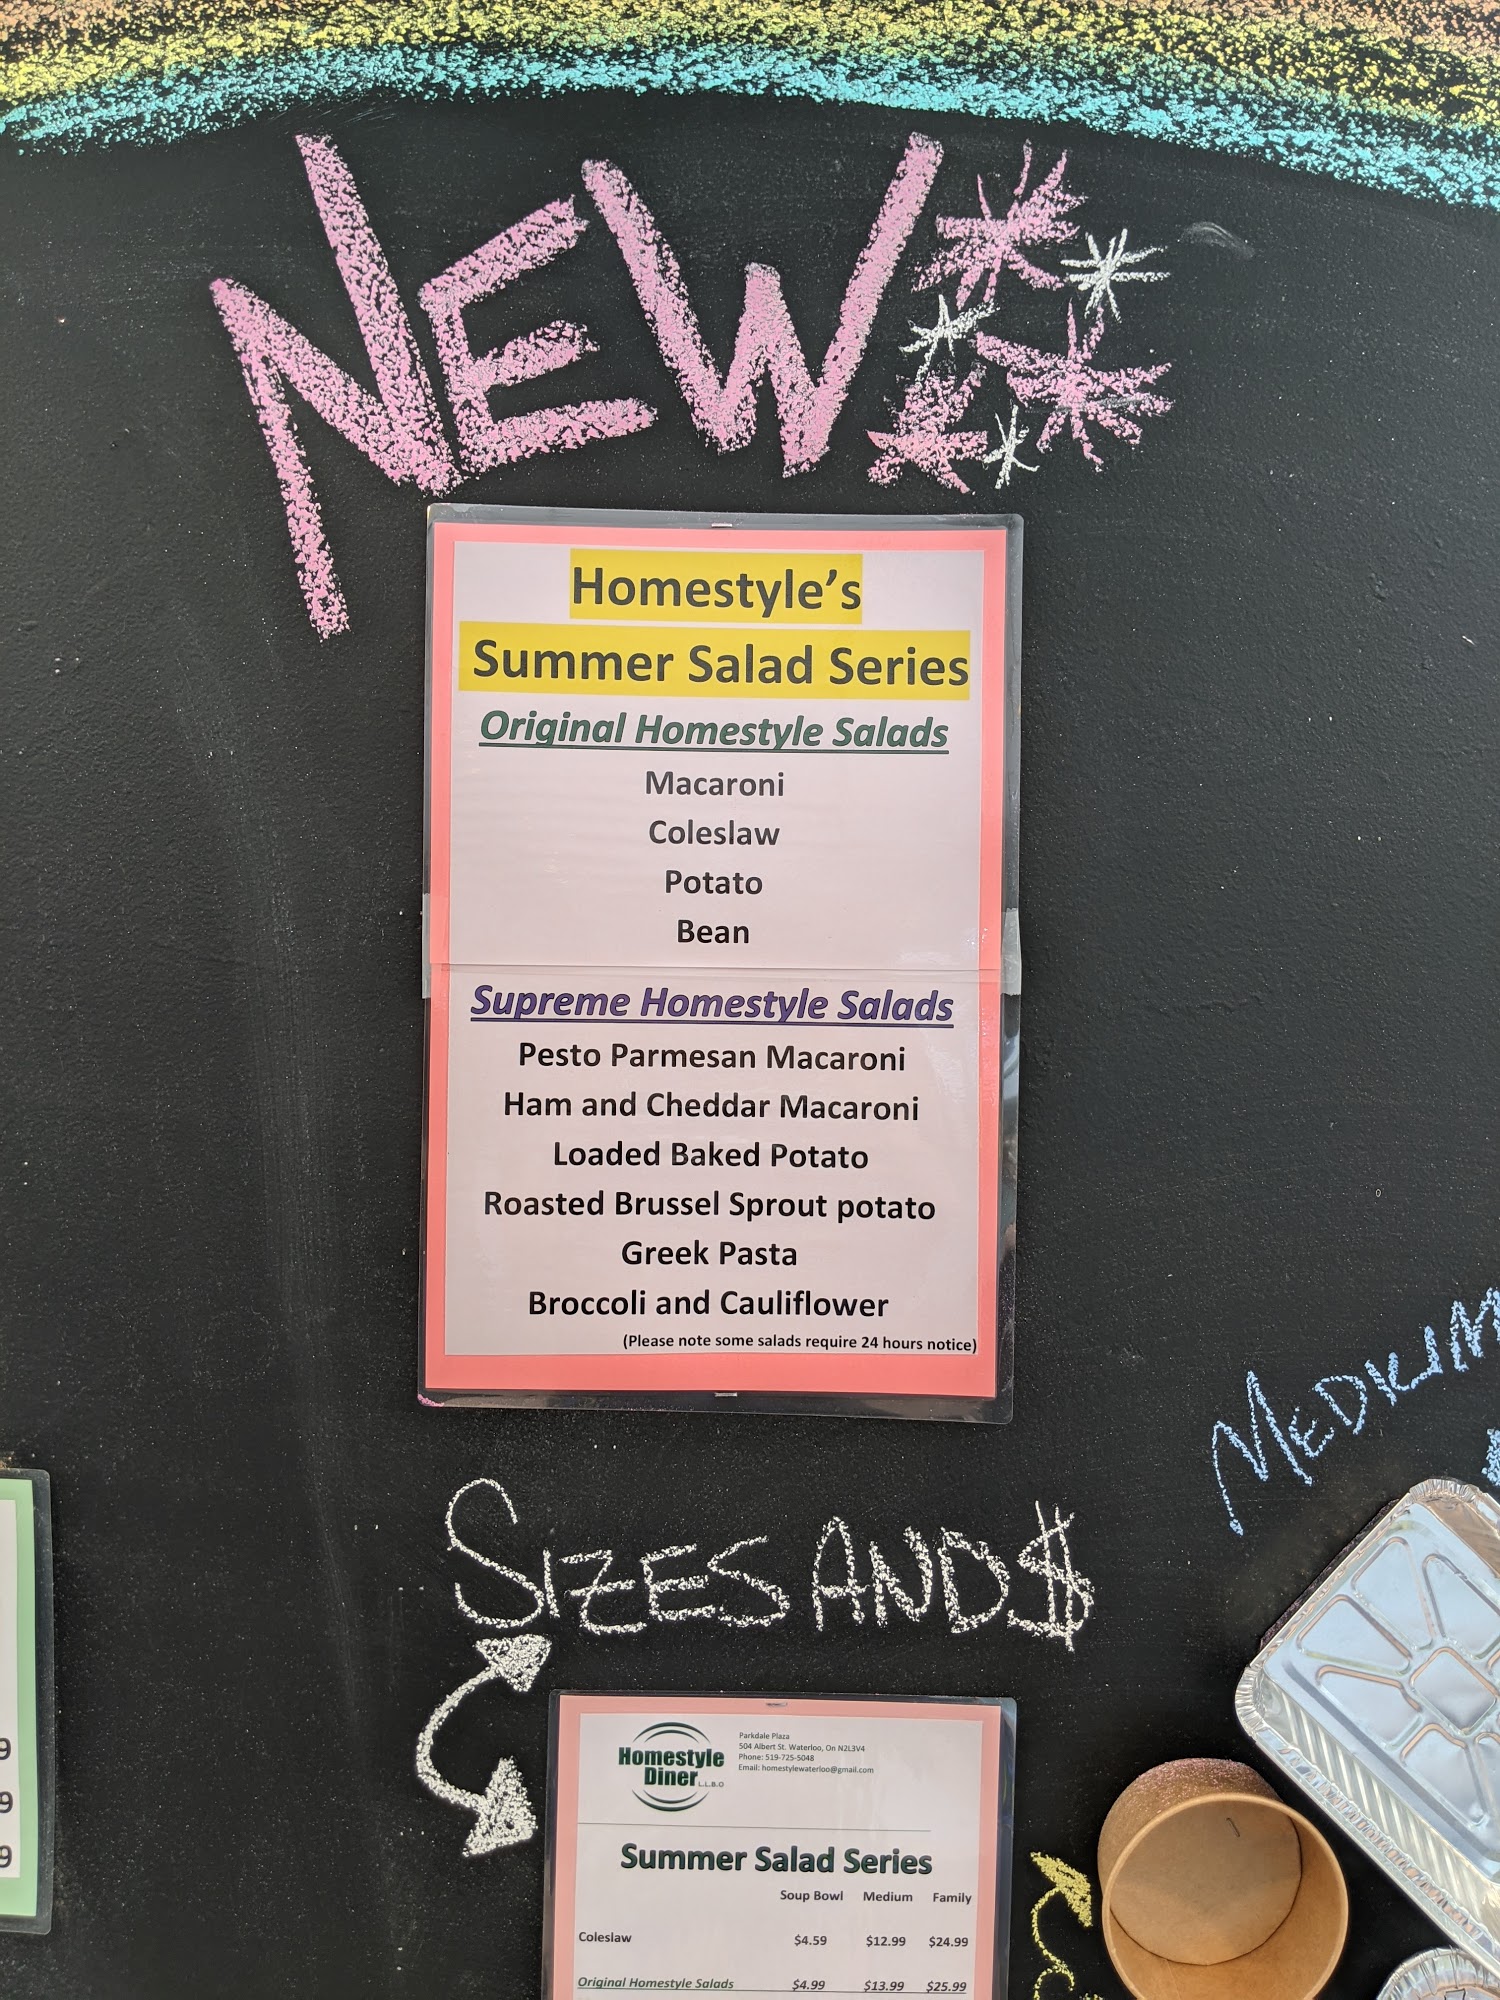 NEW
Homestyle's
Summer Salad Series
Original Homestyle Salads
Macaroni
Coleslaw
Potato
Bean
Supreme Homestyle Salads
Pesto Parmesan Macaroni
Ham and Cheddar Macaroni
Loaded Baked Potato
Roasted Brussel Sprout potato
Greek Pasta
Broccoli and Cauliflower
(Please note some salads require 24 hours notice)
MEDIUM
SIZES AND $
Homestyle
Diner L.L.B.O
Parkdale Plaza
504 Albert St. Waterloo, On N2L3V4
Phone: 519-725-5048
Email: homestylewaterloo@gmail.com
Summer Salad Series
Soup Bowl Medium Family
Coleslaw $4.59 $12.99 $24.99
Original Homestyle Salads $4.99 $13.99 $25.99
9
9
9